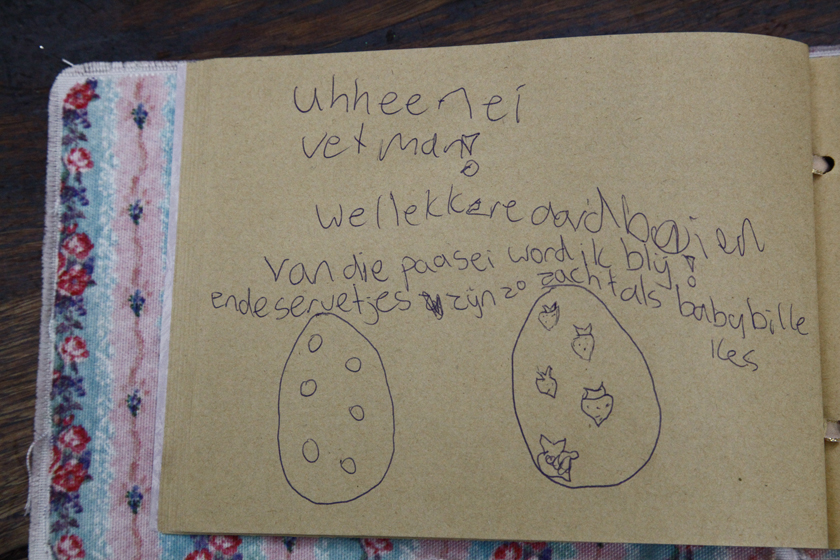 uhheenei
vet man!
wel lekkere aardbeien
van die paasei word ik blij!
en de servetjes zijn zo zacht als babybille
kes